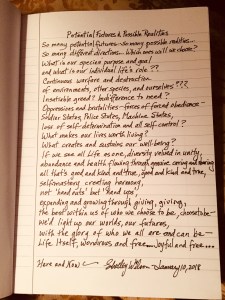 Potential Futures & Possible Realities
So many potential futures - so many possible realities...
So many different directions... Which ones will we choose?
What is our species purpose and goal
and what is our individual life's role??
Continuous warfare and destruction
of environments, other species, and ourselves???
Insatiable greed? Indifference to need?
Oppressions and brutalities - forces of forced obedience -
Soldier States, Police States, Machine States,
loss of self-determination and all self-control?
What makes our lives worth living?
What creates and sustains our well-being?
If we see all Life as one, diversity valued in unity,
abundance and health flowing through genuine caring and sharing
all that's good and kind and true, good and kind and true,
selfmastery creating harmony,
not "hand outs" but "hand ups",
expanding and growing through giving, giving,
the best within us of who we choose to be,
We'd light up our worlds, our futures,
with the glory of who we all are and can be -
Life Itself, wondrous and free... Joyful and free...
Here and Now Shelley Wilson January 10, 2018